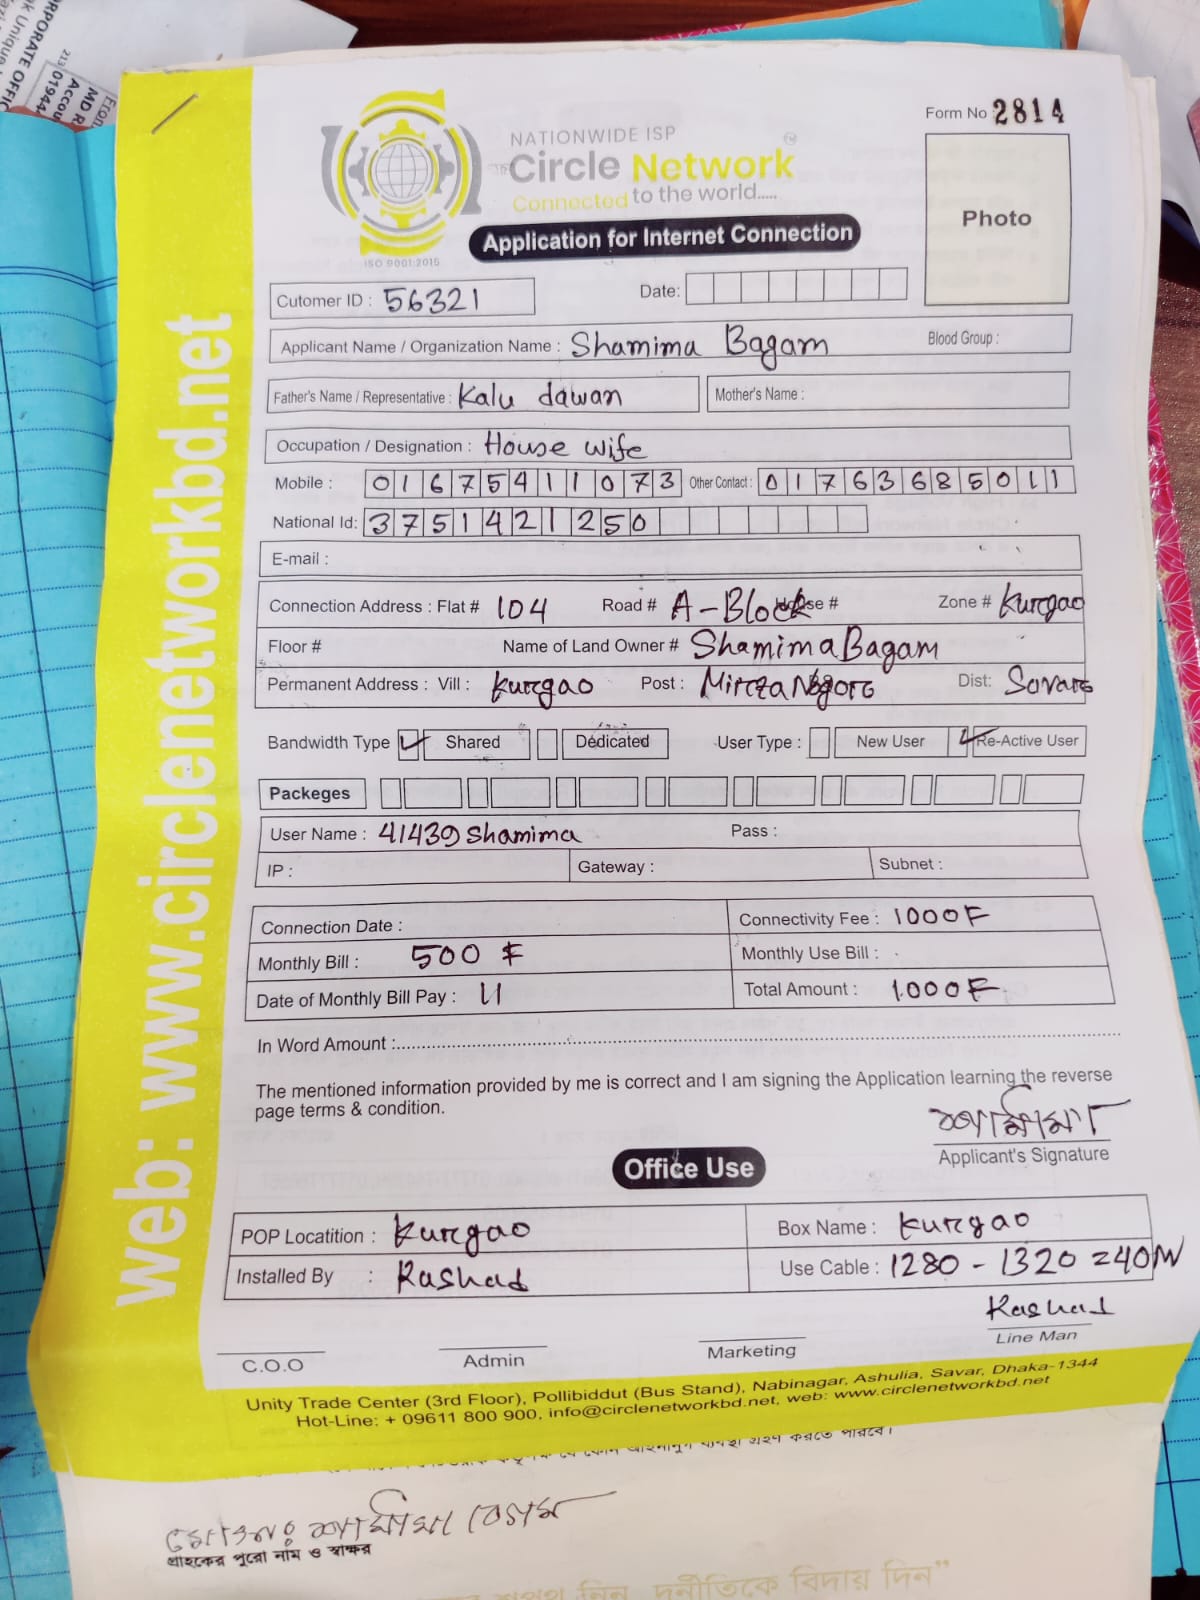 Form No 2814
NATIONWIDE ISP
Circle Network
Connected to the world.....
ISO 9001:2015
Application for Internet Connection
Photo
Cutomer ID : 56321
Date:
Applicant Name / Organization Name : Shamima Bagam Blood Group :
Father's Name / Representative : Kalu dawan Mother's Name :
Occupation / Designation : House wife
Mobile : 01675411073 Other Contact : 01763685011
National Id: 3751421250
E-mail :
Connection Address : Flat # 104 Road # A-Block House # Zone # Kurgao
Floor # Name of Land Owner # Shamima Bagam
Permanent Address : Vill : Kurgao Post : Mirza Nogore Dist: Savare
Bandwidth Type Shared Dedicated User Type : New User Re-Active User
Packeges
User Name : 41439shamima Pass :
IP : Gateway : Subnet :
Connection Date : Connectivity Fee : 1000৳
Monthly Bill : 500 ৳ Monthly Use Bill :
Date of Monthly Bill Pay : Total Amount : 1000৳
In Word Amount :
The mentioned information provided by me is correct and I am signing the Application learning the reverse
page terms & condition.
শামিমা
Applicant's Signature
Office Use
POP Locatition : Kurgao Box Name : Kurgao
Installed By : Rashad Use Cable : 1280 - 1320 =40M
Rashad
C.O.O Admin Marketing Line Man
Unity Trade Center (3rd Floor), Pollibiddut (Bus Stand), Nabinagar, Ashulia, Savar, Dhaka-1344
Hot-Line: + 09611 800 900, info@circlenetworkbd.net, web: www.circlenetworkbd.net
web: www.circlenetworkbd.net
করতে পারবে।
মোসাঃ শামিমা বেগম
গ্রাহকের পুরো নাম ও স্বাক্ষর
শপথ নিন দুর্নীতিকে বিদায় দিন”